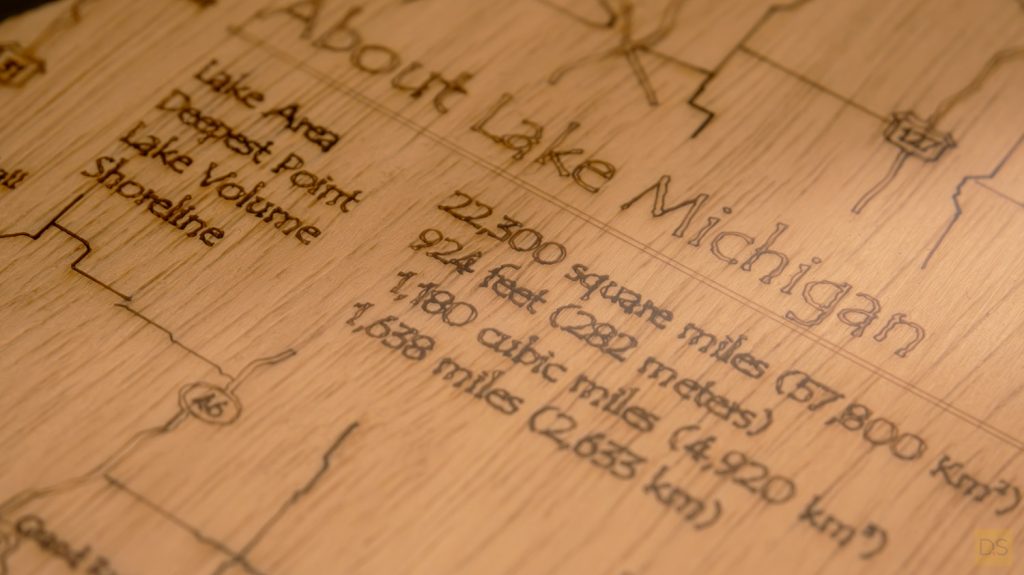 About Lake Michigan
Lake Area 22,300 square miles (57,800 Km²)
Deepest Point 924 feet (282 meters)
Lake Volume 1,180 cubic miles (4,920 km³)
Shoreline 1,638 miles (2,633 km)
127
46
DS